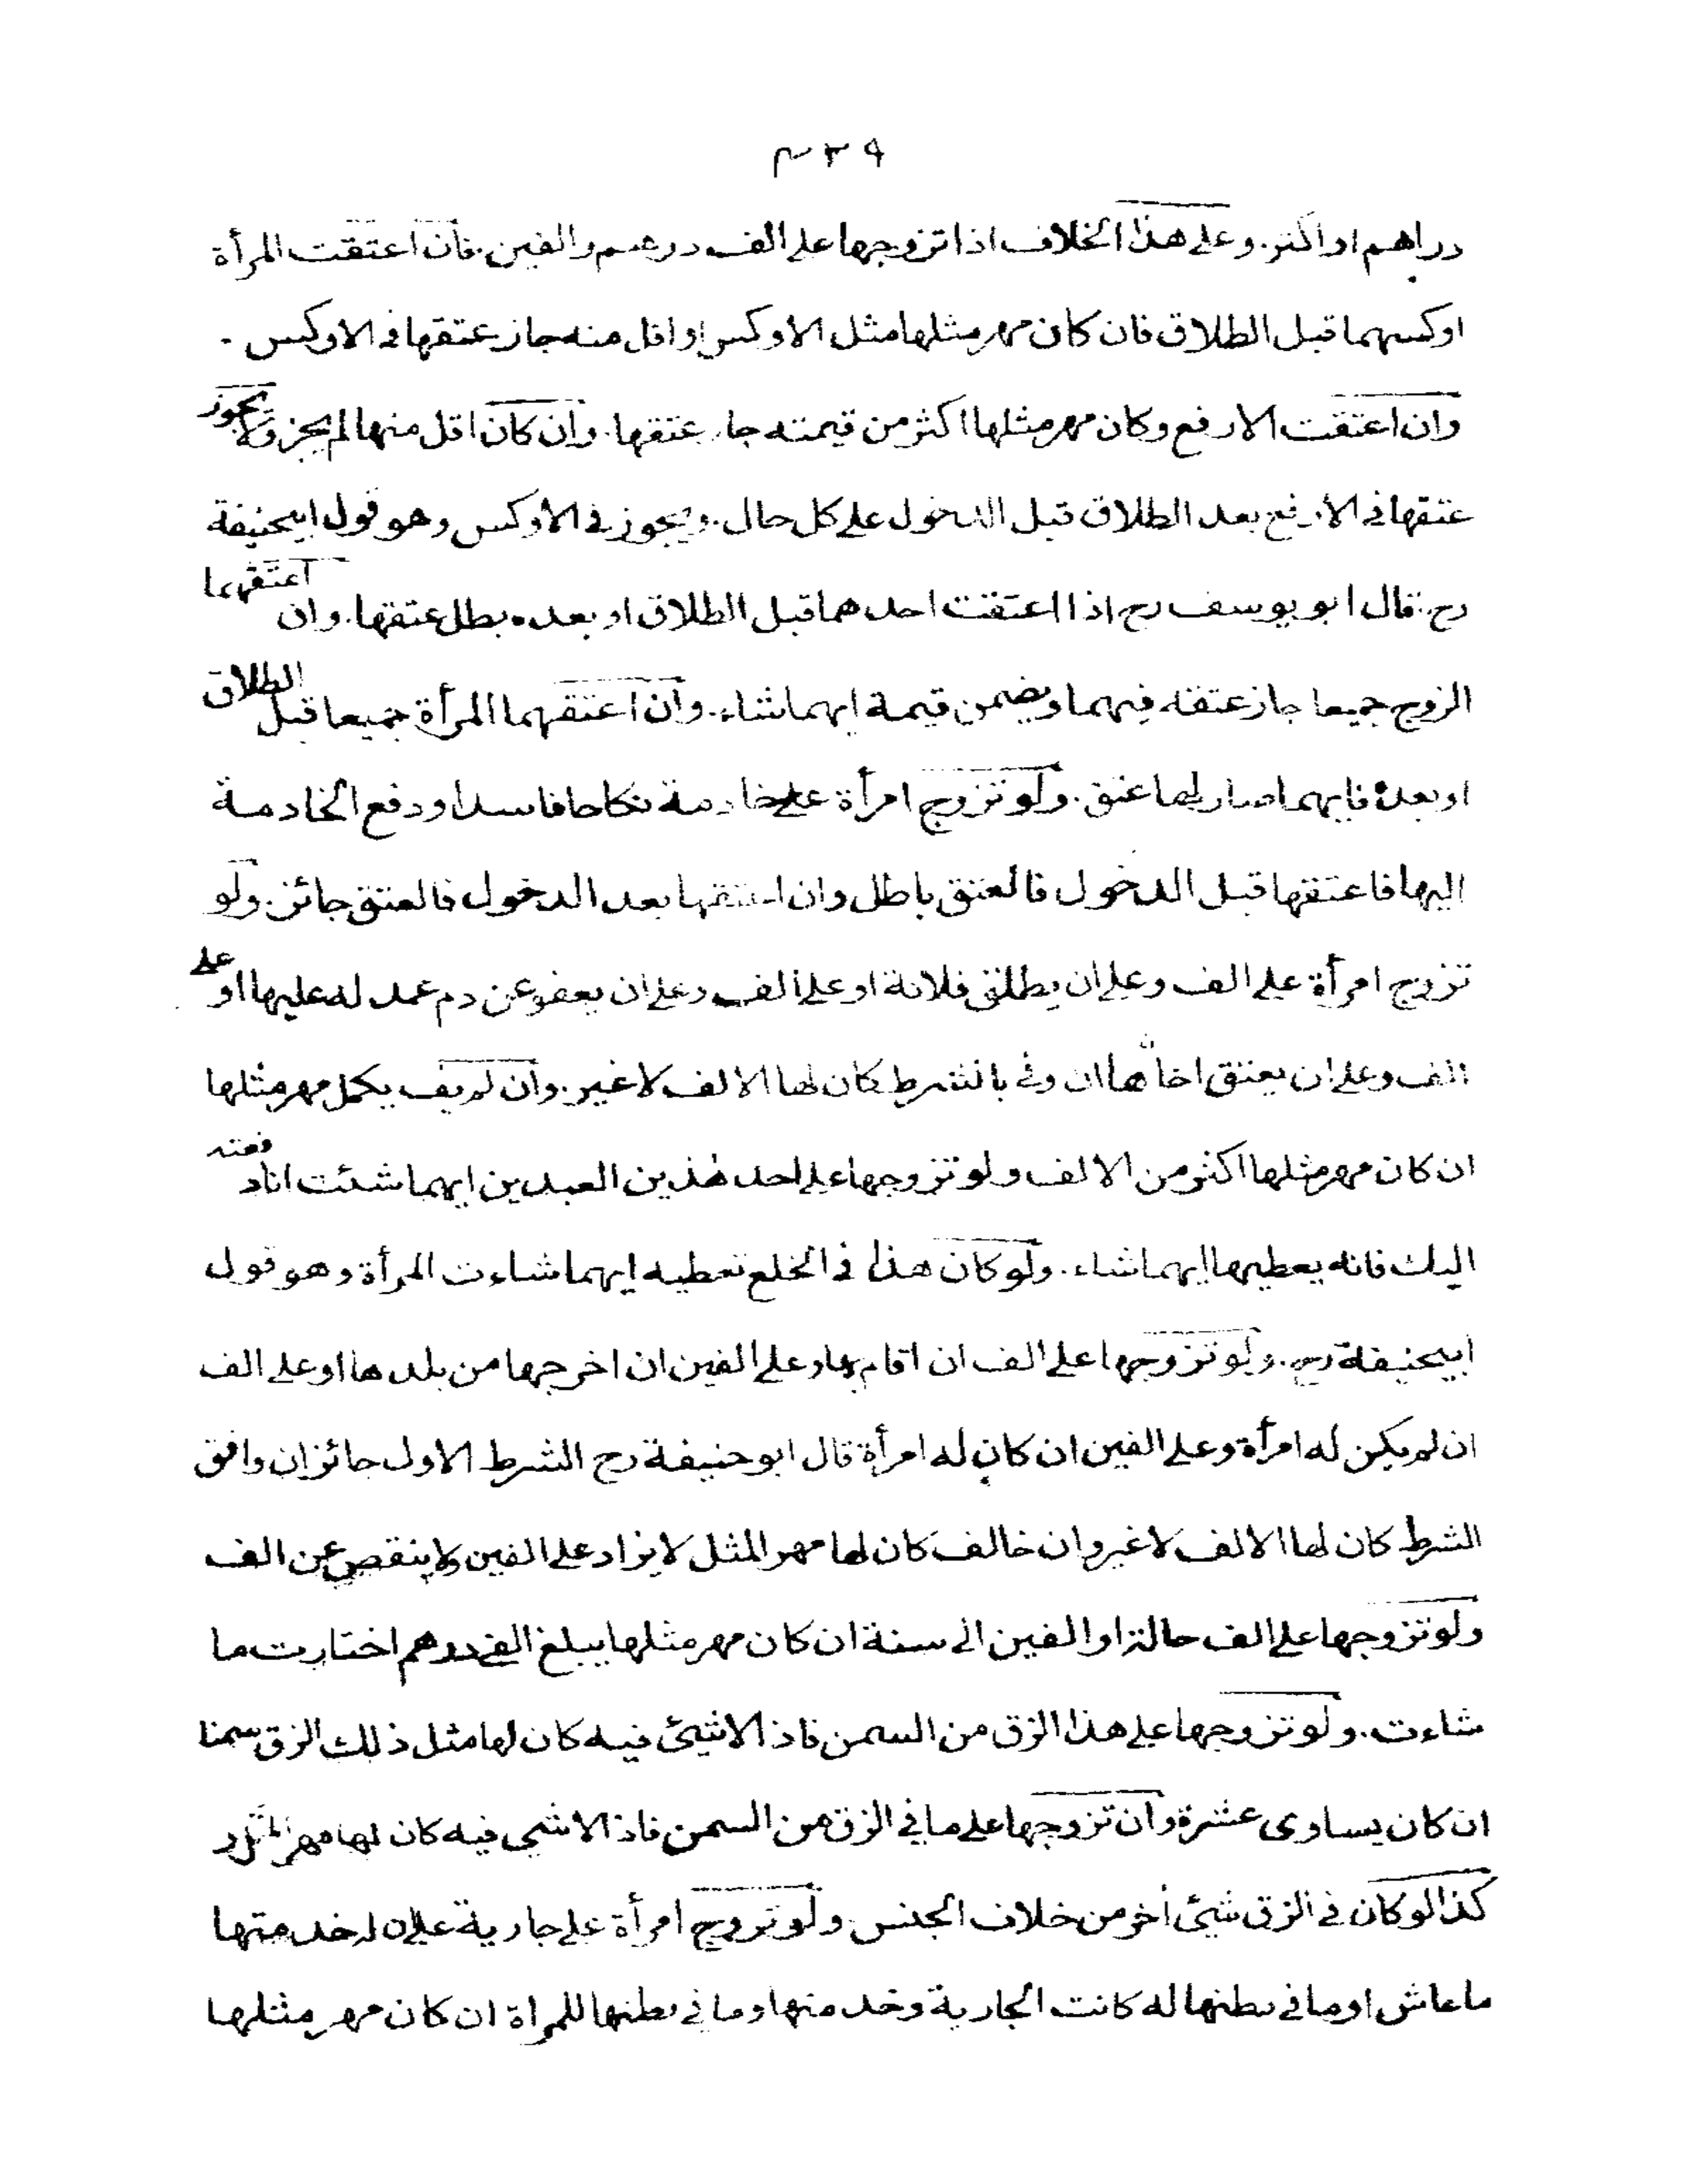 ٣٢٩
دراهم او اكثر. وعلى هذا الخلاف اذا تزوجها على الف درهم والفين. فان اعتقت المرأة
اوكسهما قبل الطلاق فان كان مهر مثلها مثل الاوكس او اقل منه جاز عتقها فى الاوكس.
وان اعتقت الارفع وكان مهر مثلها اكثر من قيمته جاز عتقها. وان كان اقل منها لم يجز ولا يجوز
عتقها فى الارفع بعد الطلاق قبل الدخول على كل حال. ويجوز فى الاوكس وهو قول ابيحنيفة
رح. قال ابو يوسف رح اذا اعتقت احدهما قبل الطلاق او بعده بطل عتقها. وان اعتقهما
الزوج جميعا جاز عتقه فيهما ويضمن قيمة ايهما شاء. وان اعتقهما المرأة جميعا قبل الطلاق
او بعده فايهما صار لها عتق. ولو تزوج امرأة على خادمة نكاحا فاسدا ودفع الخادمة
اليها فاعتقها قبل الدخول فالعتق باطل وان اعتقها بعد الدخول فالعتق جائز. ولو
تزوج امرأة على الف وعلى ان يطلق فلانة او على الف وعلى ان يعفو عن دم عمد له عليها او على
الف وعلى ان يعتق اخاها ان وفى بالشرط كان لها الالف لا غير. وان لم يف يكمل مهر مثلها
ان كان مهر مثلها اكثر من الالف ولو تزوجها على احد هٰذين العبدين ايهما شئت انا دفعته
اليك فانه يعطيها ايهما شاء. ولو كان هذا فى الخلع تعطيه ايهما شاءت المرأة وهو قول
ابيحنيفة رح. ولو تزوجها على الف ان اقام بها وعلى الفين ان اخرجها من بلدها او على الف
ان لم يكن له امرأة وعلى الفين ان كان له امرأة قال ابو حنيفة رح الشرط الاول جائز ان وافق
الشرط كان لها الالف لا غير وان خالف كان لها مهر المثل لا يزاد على الفين ولا ينقص عن الف
ولو تزوجها على الف حالة او الفين الى سنة ان كان مهر مثلها يبلغ الفى درهم اختارت ما
شاءت. ولو تزوجها على هذا الزق من السمن فاذا لا شيئ فيه كان لها مثل ذلك الزق سمنا
ان كان يساوى عشرة وان تزوجها على ما في الزق من السمن فاذا لا شيى فيه كان لها مهر المثل و
كذا لو كان فى الزق شيئ أخر من خلاف الجنس ولو تزوج امرأة على جارية على ان له خدمتها
ما عاش او ما فى بطنها له كانت الجارية وخدمتها وما فى بطنها للمرأة ان كان مهر مثلها